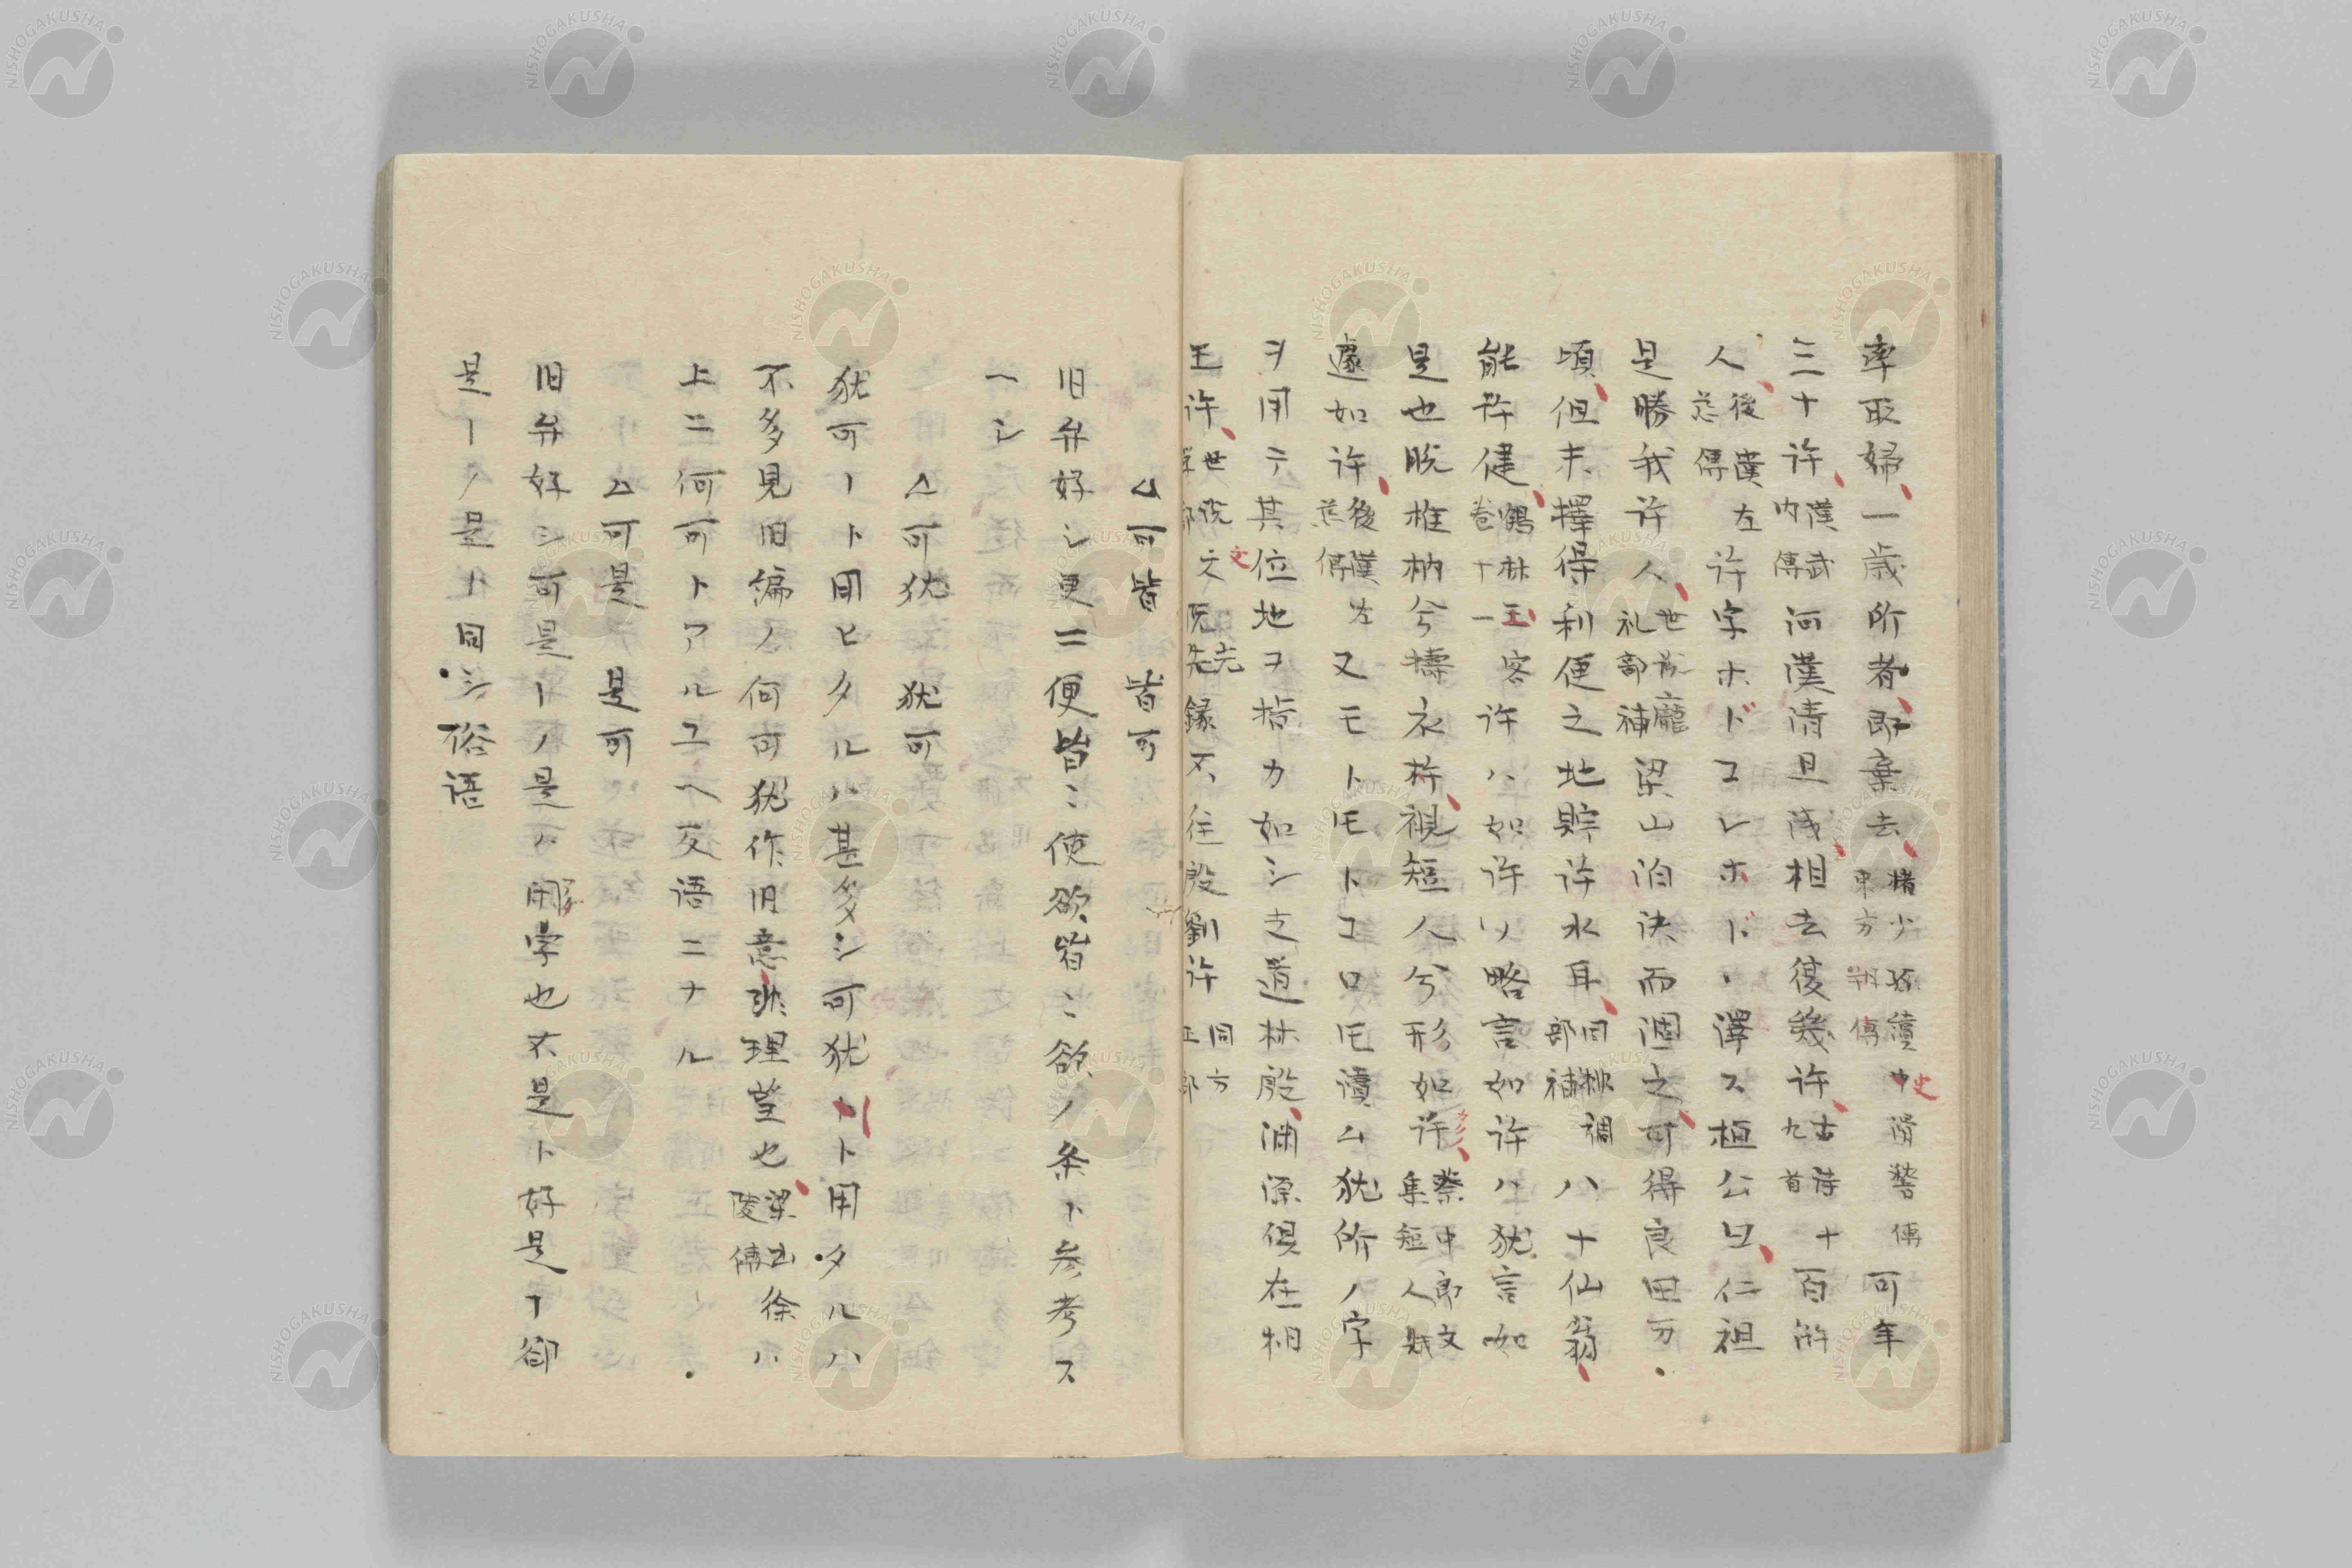 率取婦一歳所者即棄去 褚少孫續史滑稽傳中東方朔傳 可年
三十許 漢武内傳 河漢清且浅相去復幾許 古詩十九首 十百許
人 後漢左慈傳 左許字ホドコレホド、澤ス桓公曰仁祖
是勝我許人 世説礼部補 龐梁山泊決而涸之可得良田万
頃但未擇得利便之地貯許水耳 同排調部補 八十仙翁
能許健 鶴林玉卷十一 客許ハ如許ソ略言如許ハ犹言如
是也脱椎枘兮擣衣杵視短人兮形如許 蔡中郎文集短人賦
遽如許 後漢左慈傳 又モトモトコロモ讀ム犹所ノ字
ヲ用テ其位地ヲ指カ如シ支道林殷渊源俱在相
王許 世説文學部 阮光禄不往殷劉許 同方正部
△可皆 皆可
旧弁好シ更ニ便皆ニ使欲皆ニ欲ノ条ト参考ス
ヘシ
△可犹 犹可
犹可ート用ヒタルハ甚多シ可犹ート用タルハ
不多見旧編ノ何可犹作旧意欺理望也 梁書徐陵傳 ハ
上ニ何可トアルユヘ反語ニナル
△可是 是可
旧弁好シ可是ーノ是ハ閑字也不是ト好是ー卻
是ーノ是ト同シ俗语
NISHOGAKUSHA